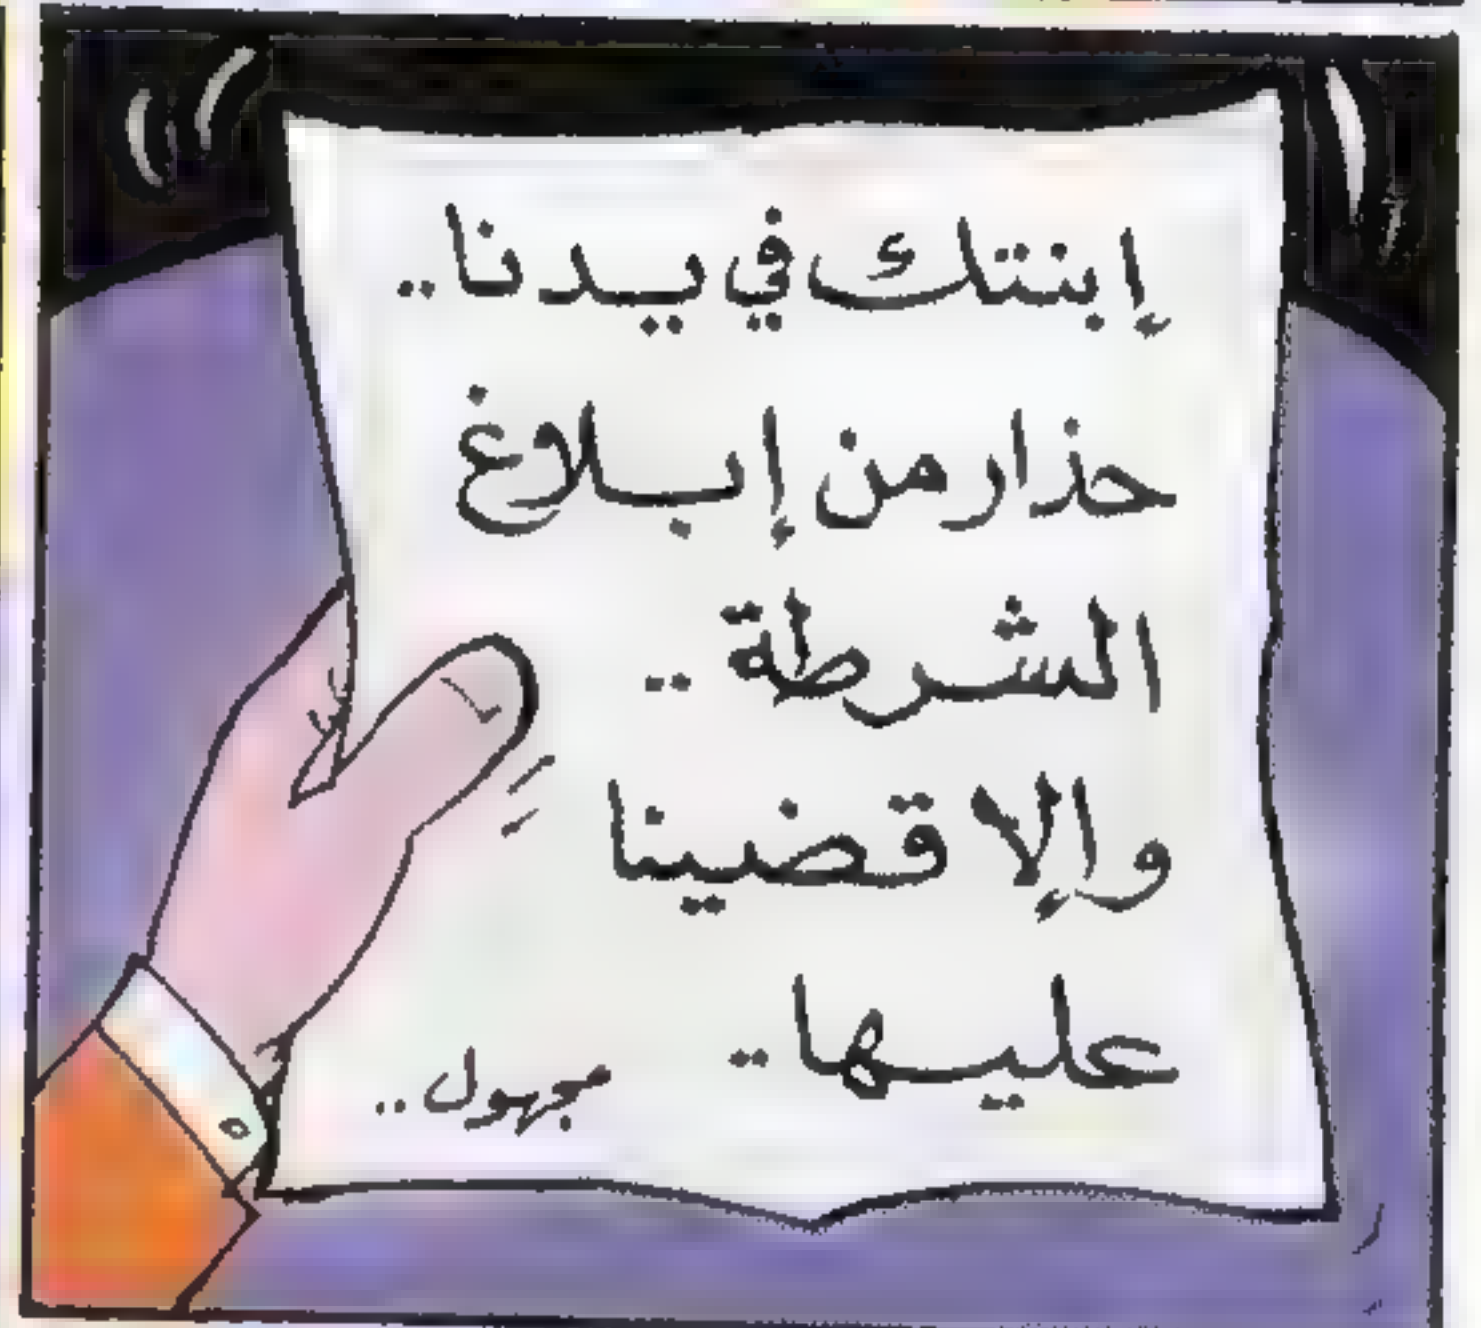 إبنتك في يدنا..
حذار من إبلاغ
الشرطة ..
وإلا قضينا
عليها..
مجهول..